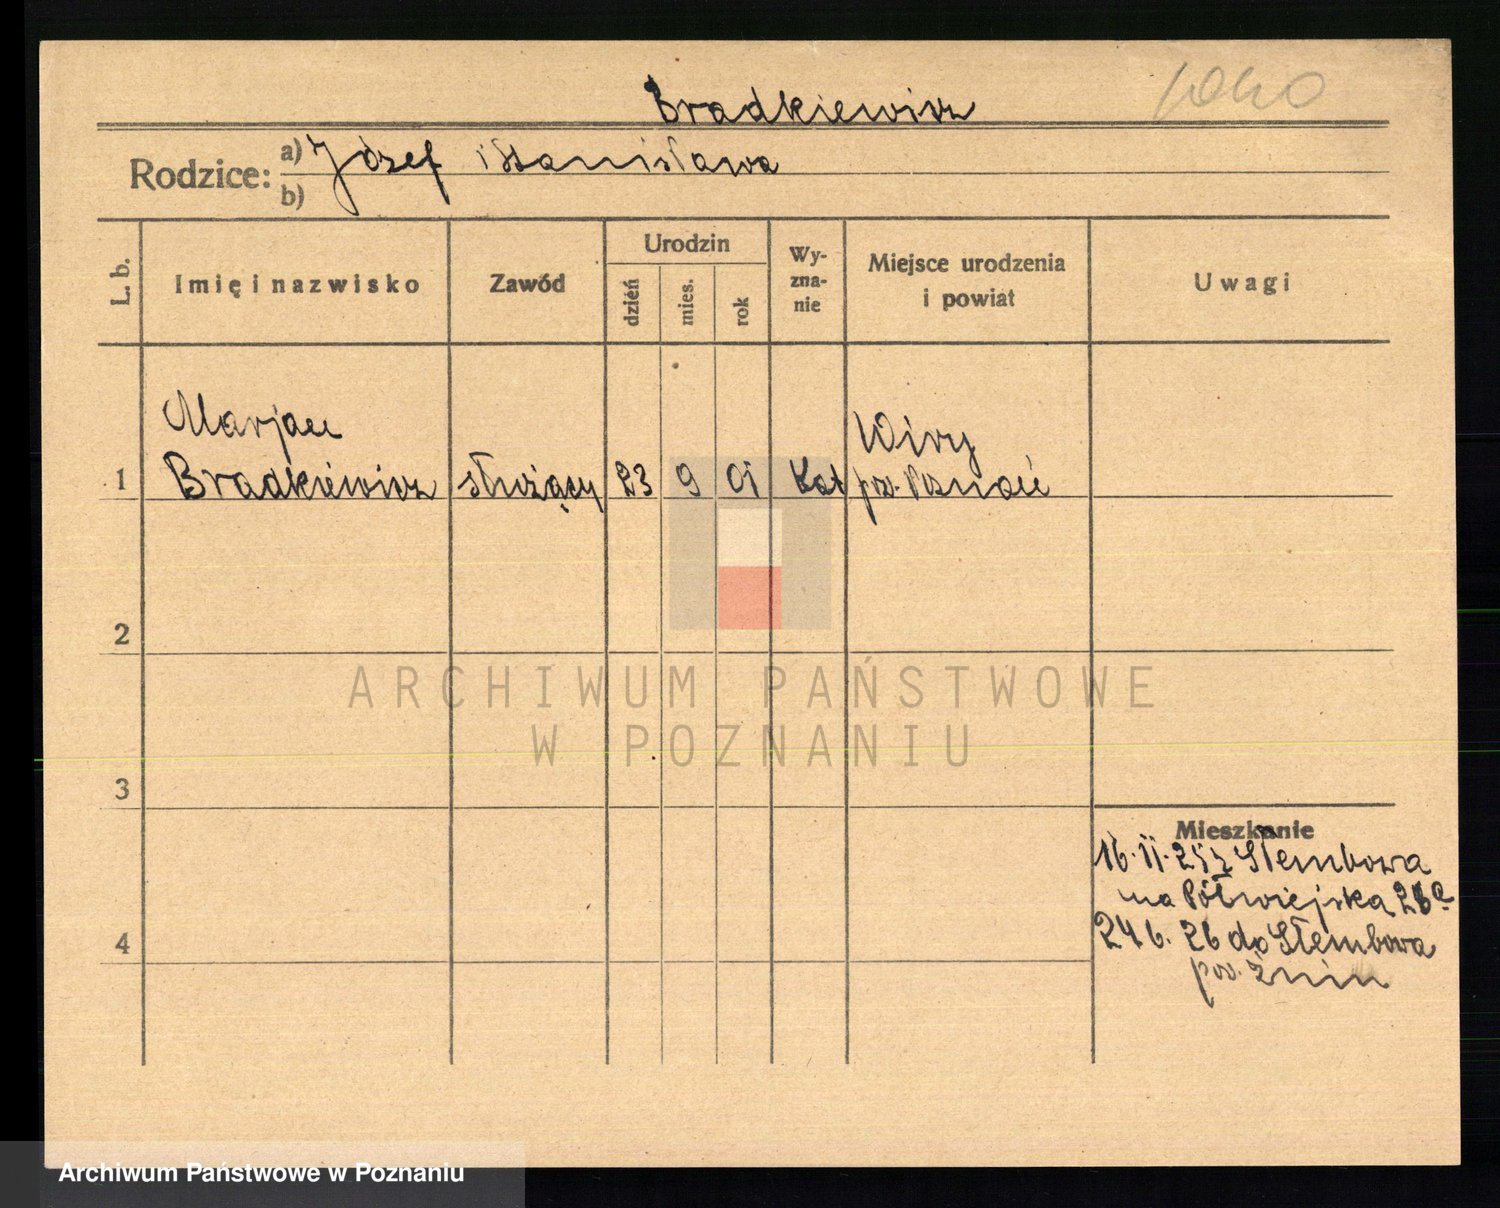 Bradkiewicz
Rodzice: a) Józef i Stanisława
b)
L. b.
Imię i nazwisko
Zawód
Urodzin
dzień
mies.
rok
Wy-
zna-
nie
Miejsce urodzenia
i powiat
Uwagi
Marjan
1 Bradkiewicz służący 23 9 01 Kat
Wiry
pow. Poznań
2
3
4
Mieszkanie
16.II.25 z Słembowa
na Półwiejska
24 6. 26 do Słembowa
pow. Żnin
ARCHIWUM PAŃSTWOWE
W POZNANIU
Archiwum Państwowe w Poznaniu